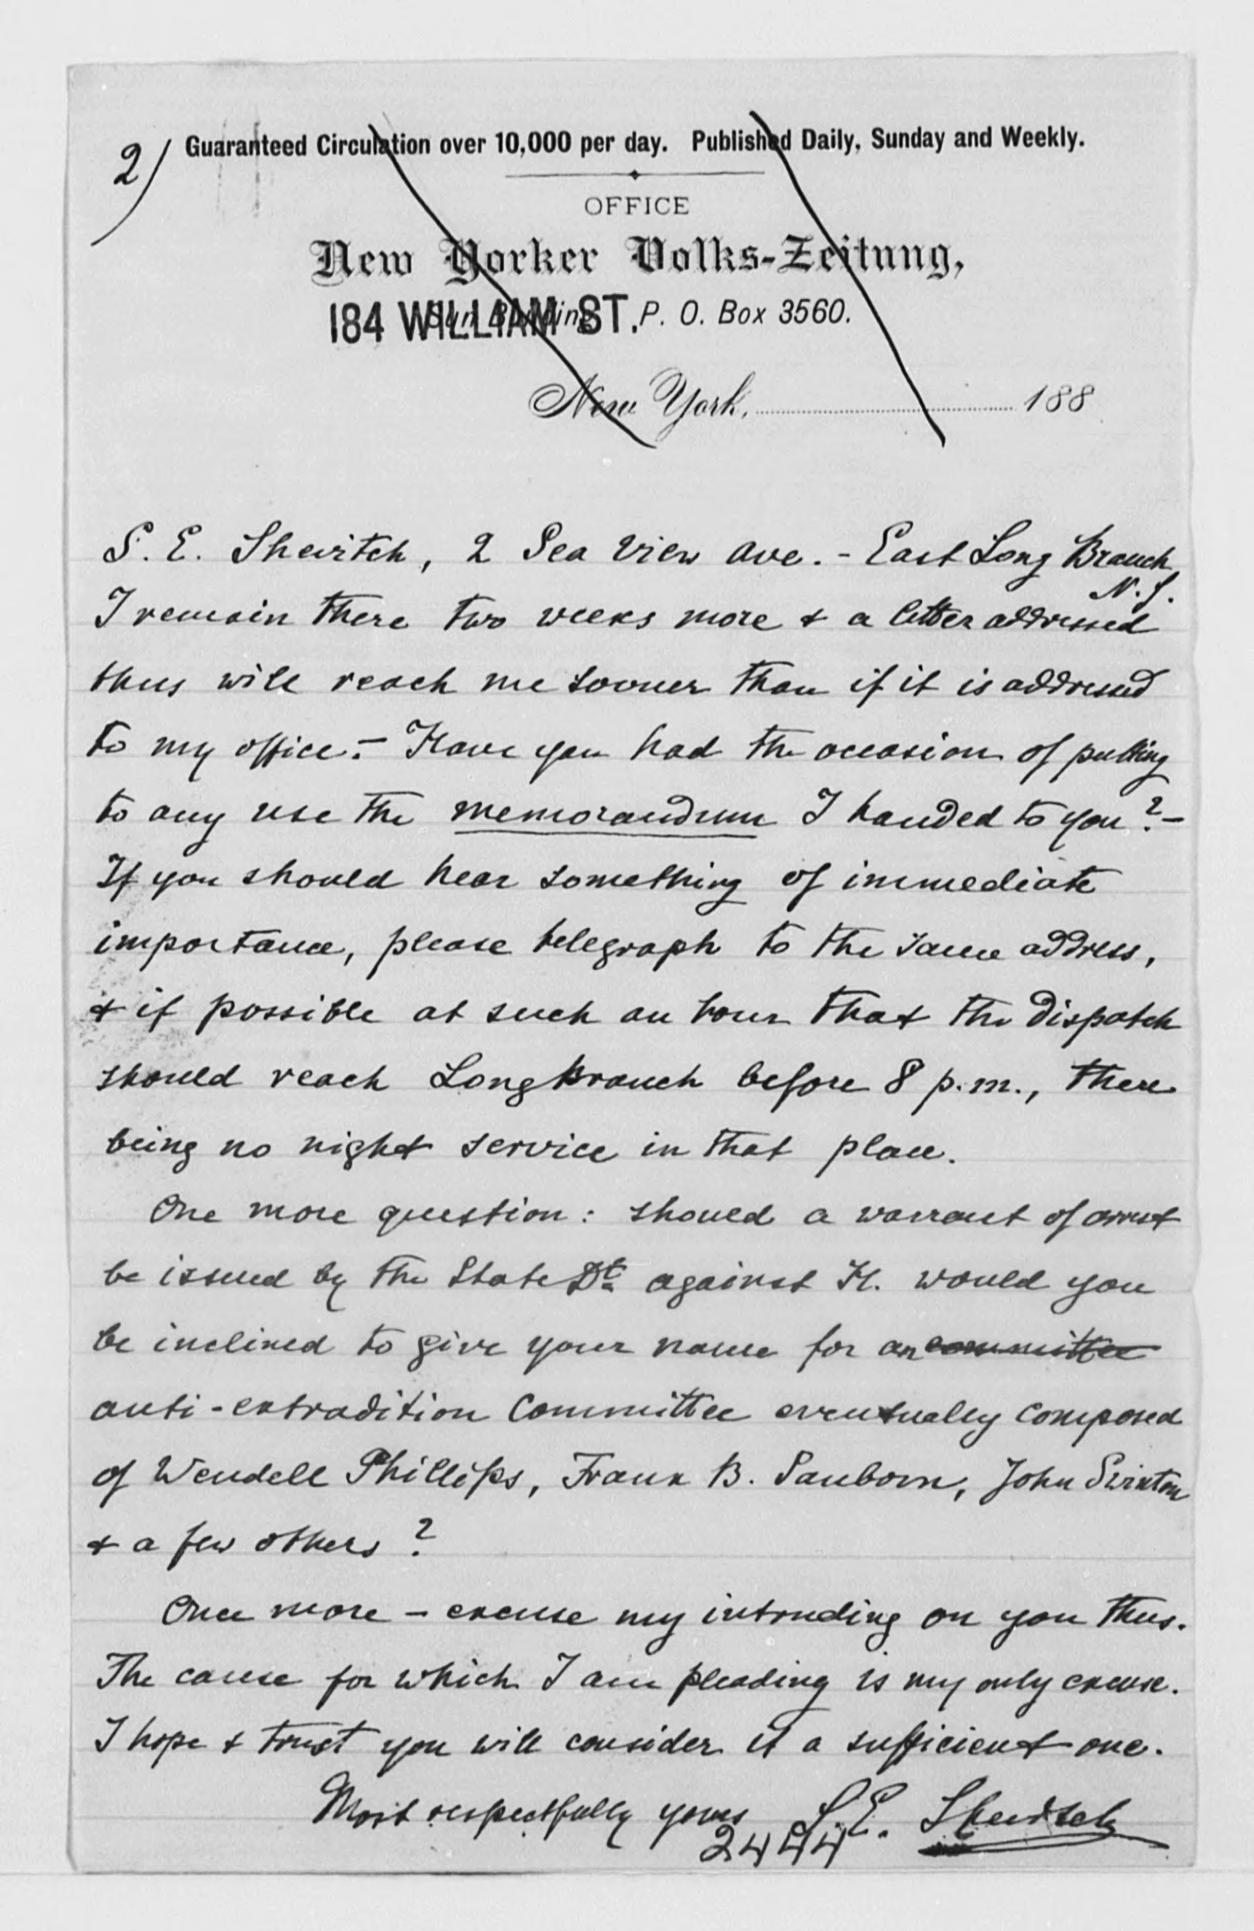 2/ Guaranteed Circulation over 10,000 per day. Published Daily, Sunday and Weekly.
OFFICE
New Yorker Volks-Zeitung,
184 WILLIAM ST. P. O. Box 3560.
New York, 188
S. E. Shevitch, 2 Sea View Ave. - East Long Branch
N. J.
I remain there two weeks more & a letter addressed
thus will reach me sooner than if it is addressed
to my office. - Have you had the occasion of putting
to any use the memorandum I handed to you? -
If you should hear something of immediate
importance, please telegraph to the same address,
& if possible at such an hour that the dispatch
should reach Long Branch before 8 p.m., there
being no night service in that place.
One more question: should a warrant of arrest
be issued by the State Dt. against H. would you
be inclined to give your name for an committee
anti-extradition Committee eventually composed
of Wendell Phillips, Frank B. Sanborn, John Swinton
& a few others?
Once more - excuse my intruding on you thus.
The cause for which I am pleading is my only excuse.
I hope & trust you will consider it a sufficient one.
Most respectfully yours S. E. Shevitch
2444